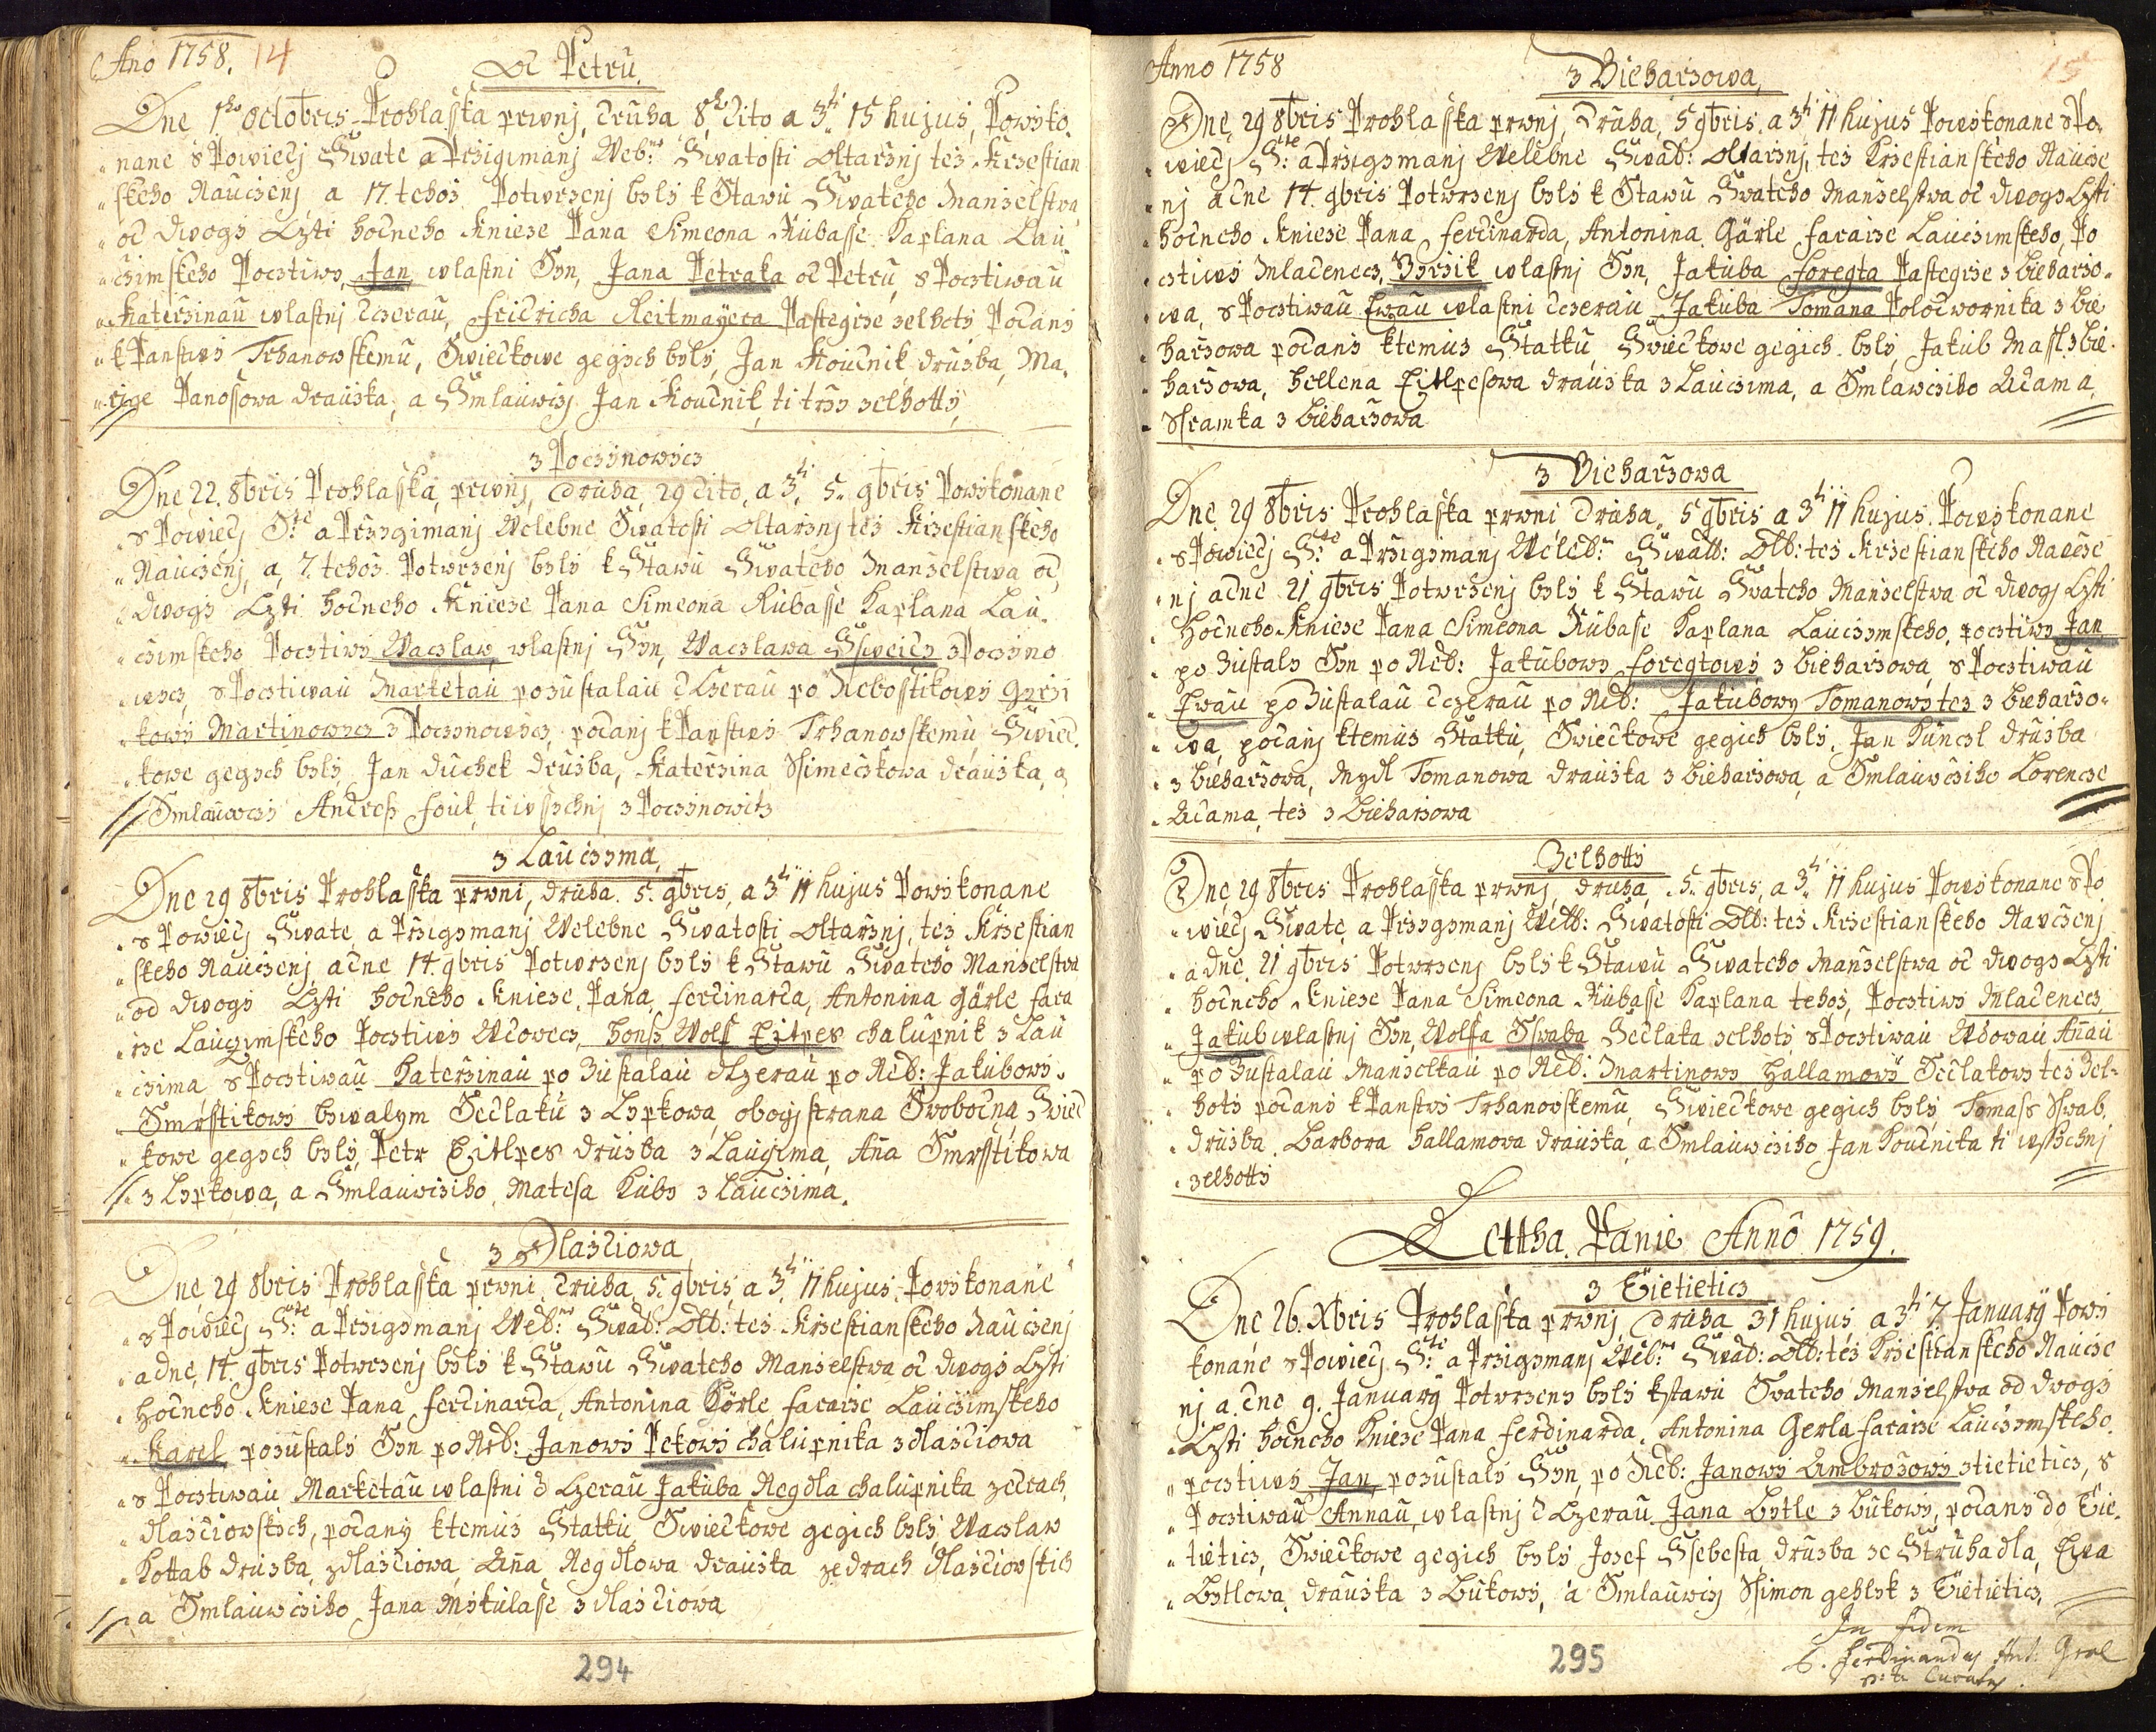 Ano 1758. 14
Od Petrů.
Dne 1ho Octobris Prohlasska prwnj, druha 8ho dito a 3ti 15 hujus, Powyko,
nane s Powiedj Swate a Przigimanj Web:ne Swatosti oltarznj tez Krzestian
skeho Nauczenj, a 17. tehoz Potwrzenj byly k Stawu Swateho Manzelstwa,
od dwogi Cżti hodneho Knieze Pana Simeona Kubasse Kaplana Lau,
czimskeho Pocztiwy, Jan wlastni Syn, Jana Petraka od Petrů, s Pocztiwau
Katerzinau wlastnj dczerau, Fridricha Reitmayera Pastegrze zelhoty Podany
k Panstwy Trhanowskemu, Swiedkowe gegich byly, Jan Koudnik druzba, Ma,
rige Panossowa drauzka, a Smlauwczj Jan Koudnik, ti trzy zelhotty,
z Poczinowicz
Dne 22. 8bris Prohlasska, prwnj, druha 29 dito, a 3ti 5. 9bris Powykonane
s Powiedj S:te a Przigimanj Welebne Swatosti oltarznj tez Krzestianskeho
Nauczenj, a 7. tehoz Potwrzenj byly k Stawu Swateho Manzelstwa od,
dwogi Cżti hodneho Knieze Pana Simeona Kubasse Kaplana Lau,
czimskeho Pocztiwy Waczlaw, wlastnj Syn, Waczlawa Ssweicz z Poczino
wicz, s Pocztiwau Marketau pozustalau dCzerau po Nebosstikowy Girzi
kowy Martinowicz z Poczinowicz, podanj k Panstwy Trhanowskemu, Swied,
kowe gegich byly Jan Duchek druzba, Katerzina Ssimeczkowa drauzka, a
Smlauwczy Andress Foul, ti wssichnj z Poczinowitz
z Lauczima,
Dne 29 8bris Prohlasska prwni, druha. 5. 9bris, a 3ti 11 hujus Powykonane
s Powiedj Swate, a Przigimanj Welebne Swatosti oltarznj, tez Krzestian
skeho Nauczenj, adne 14. 9bris Potwrzenj byly k Stawu Swateho Manzelstwa
od dwogi Cżti hodneho Knieze, Pana, Ferdinarda, Antonina Gärle fara
rze Lauczimskeho Pocztiwy Wdowecz, Honss Wolf Eitlpes chalupnik z Lau
czima, s Pocztiwau Katerzinau po Zustalau dCzerau po Neb: Jakubowi
Smrsstikowy bywalym Sedlaku z Lypkowa, obogj strana Swobodna, Swied
kowe gegich byly, Petr Eitlpes druzba z Lauczima, Aña Smrsstikowa
z Lypkowa, a Smlauwcziho, Matesa Kuby z Lauczima.
z Dlazdiowa
Dne 29 8bris Prohlasska prwni, druha, 5. 9bris, a 3ti 11 hujus, Powykonane
s Powiedj S:te a Przigimanj Web:ne Swab: Olt: tez Krzestianskeho Nauczenj
adne, 14. 9bris Potwrzenj byly k Stawu Swateho Manzelstwa od dwogi Cżti
Hodneho Knieze Pana Ferdinarda, Antonina Görle, fararze Lauczimskeho
Karel, pozustaly Syn po Neb: Janowi Pekowi chalupnika z dlazdiowa
s Pocztiwau Marketau wlastni dCzerau Jakuba Regdla chalupnika zedrach,
dlazdiowskich, podany ktemuz Stattku, Swiedkowe gegich byly, Waczlaw
Kottab druzba, zdlazdiowa, Aña Regdlowa drauzka zedrach dlazdiowskich
a Smlauwcziho Jana Mikulasse z dlazdiowa
294
Anno 1758 15
z Bieharzowa,
Dne, 29 8bris Prohlasska prwnj, druha, 5 9bris, a 3ti 11 hujus Powykonane s Po
wiedj S:te a Przigimanj Welebne Swab: oltarznj, tez Krzestianskeho Naucze
nj adne 14. 9bris Potwrzenj byly k Stawu Swateho Manzelstwa od dwogi Cżti
hodneho Knieze Pana Ferdinarda, Antonina, Gärle fararze Lauczimskeho, Po
cztiwy Mladenecz, Girzik wlastnj Syn, Jakuba Foregta Pastegrze z bieharzo,
wa, s Pocztiwau Ewau wlastni dczerau Jakuba Tomana Polodwornika z bie
harzowa podany ktemuz Stattku, Swiedkowe gegich byly, Jakub Massl z bie
harzowa, Hellena Eitlpesowa drauzka z Lauczima, a Smlawcziho Adama,
Sframka z bieharzowa
z Bieharzowa
Dne, 29 8bris Prohlasska prwni druha, 5 9bris a 3ti 11 hujus. Powykonane
s Powiedj S:te a Przigimanj Weleb:ne Swatb: Oltb: tez Krzestianskeho Naucze
nj adne 21 9bris Potwrzenj byly k Stawu Swateho Manzelstwa od dwogj Cżti
Hodneho Knieze Pana Simeona Kubase Kaplana Lauczimskeho, pocztiwy Jan
po Zustaly Syn po Neb: Jakubowy Foregtowy z bieharzowa, s Pocztiwau
Ewau po Zustalau dczerau po Neb: Jakubowy Tomanowy tez z bieharzo,
wa, podanj ktemuz Stattku, Swiedkowe gegich byly, Jan Kunczl druzba
z bieharzowa, Mydl Tomanowa drauzka z bieharzowa, a Smlauwcziho Lorencze
Adama, tez z bieharzowa
Zelhotti
Dne, 29 8bris Prohlasska prwnj, druha, 5. 9bris, a 3ti 11 hujus Powykonane s Po
wiedj Swate, a Przigimanj Welb: Swatosti Oltb: tez Krzestianskeho Nauczenj
adne. 21 9bris Potwrzenj byly k Stawu Swateho Manzelstwa od dwogi Cżti
hodneho Knieze Pana Simeona Kubasse Kaplana tehoz, Pocztiwy Mladenecz
Jakub wlastnj Syn, Wolfa Sswaba Sedlaka zelhoti s Pocztiwau Wdowau Añau
po Zustalau Manzelkau po Neb: Martinowy Hallamowy Sedlakowi tez Zel-
hoti podany k Panstwy Trhanowskemu, Swiedkowe gegich byly, Tomass Sswab,
druzba, Barbora Hallamowa drauzka, a Smlauwcziho Jan Koudnika ti wssichnj
zelhotti
Lettha Panie Anno 1759.
z Tietieticz
Dne 26. Xbris Prohlasska prwnj, druha 31 hujus a 3ti 7. January Powy
konane s Powiedj S:te a Przigimanj Web:ne Swab: Oltb: tez Krzestianskeho Naucze
nj, a dne 9. January Potwrzeny byly kstawu Swateho Manzelstwa od dwogi
Cżti hodneho Knieze Pana Ferdinarda, Antonina Gerla fararze Lauczimskeho,
pocztiwy Jan, pozustaly Syn, po Neb: Janowy Ambrozowy ztietieticz, s
Pocztiwau Annau, wlastnj dCzerau Jana Bytle z Bukowy, podany do Tie,
tieticz, Swiedkowe gegich byly Josef Ssebesta druzba ze Struhadla, Ewa
Bytlowa, drauzka z Bukowy, a Smlauwczj Ssimon gehlyk z Tietieticz,
In fidem
P. Ferdinandus Ant: Gerl
p:t: Curatus.
295